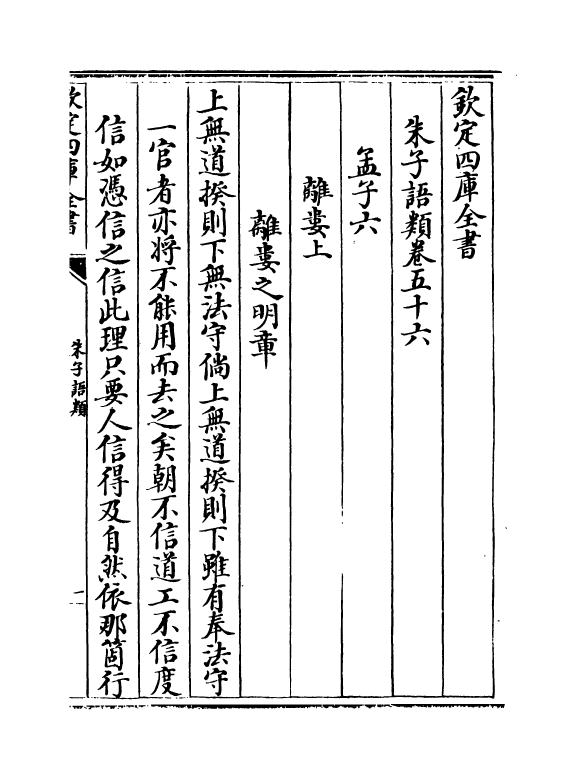 欽定四庫全書
朱子語類卷五十六
孟子六
離婁上
離婁之明章
上無道揆則下無法守倘上無道揆則下雖有奉法守
一官者亦將不能用而去之矣朝不信道工不信度
信如憑信之信此理只要人信得及自然依那箇行
欽定四庫全書
朱子語類
一